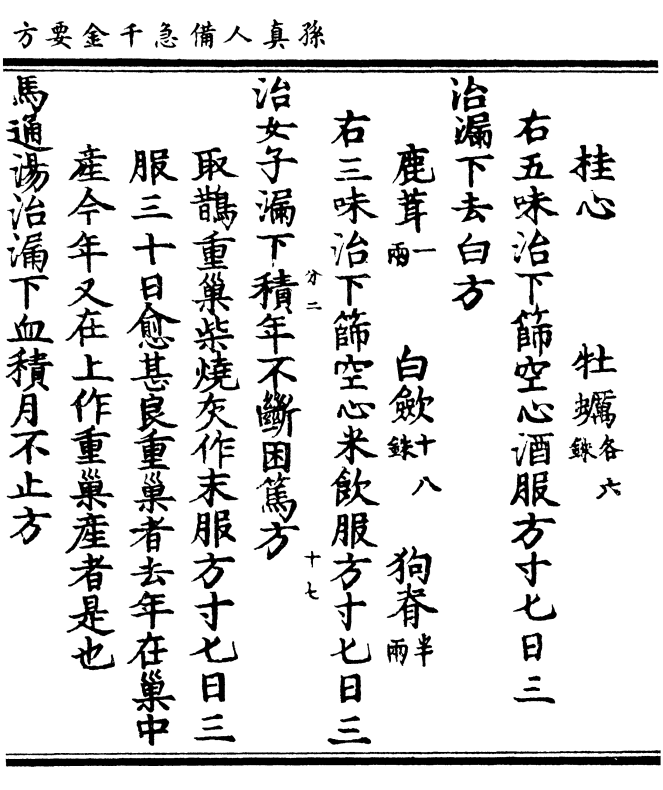 孫真人備急千金要方
桂心 牡蠣各六銖
右五味治下篩空心酒服方寸匕日三
治漏下去白方
鹿茸一兩 白歛十八銖 狗脊半兩
右三味治下篩空心米飲服方寸匕日三
分二 十七
治女子漏下積年不斷困篤方
取鵲重巢柴燒灰作末服方寸匕日三
服三十日愈甚良重巢者去年在巢中
產今年又在上作重巢產者是也
馬通湯治漏下血積月不止方